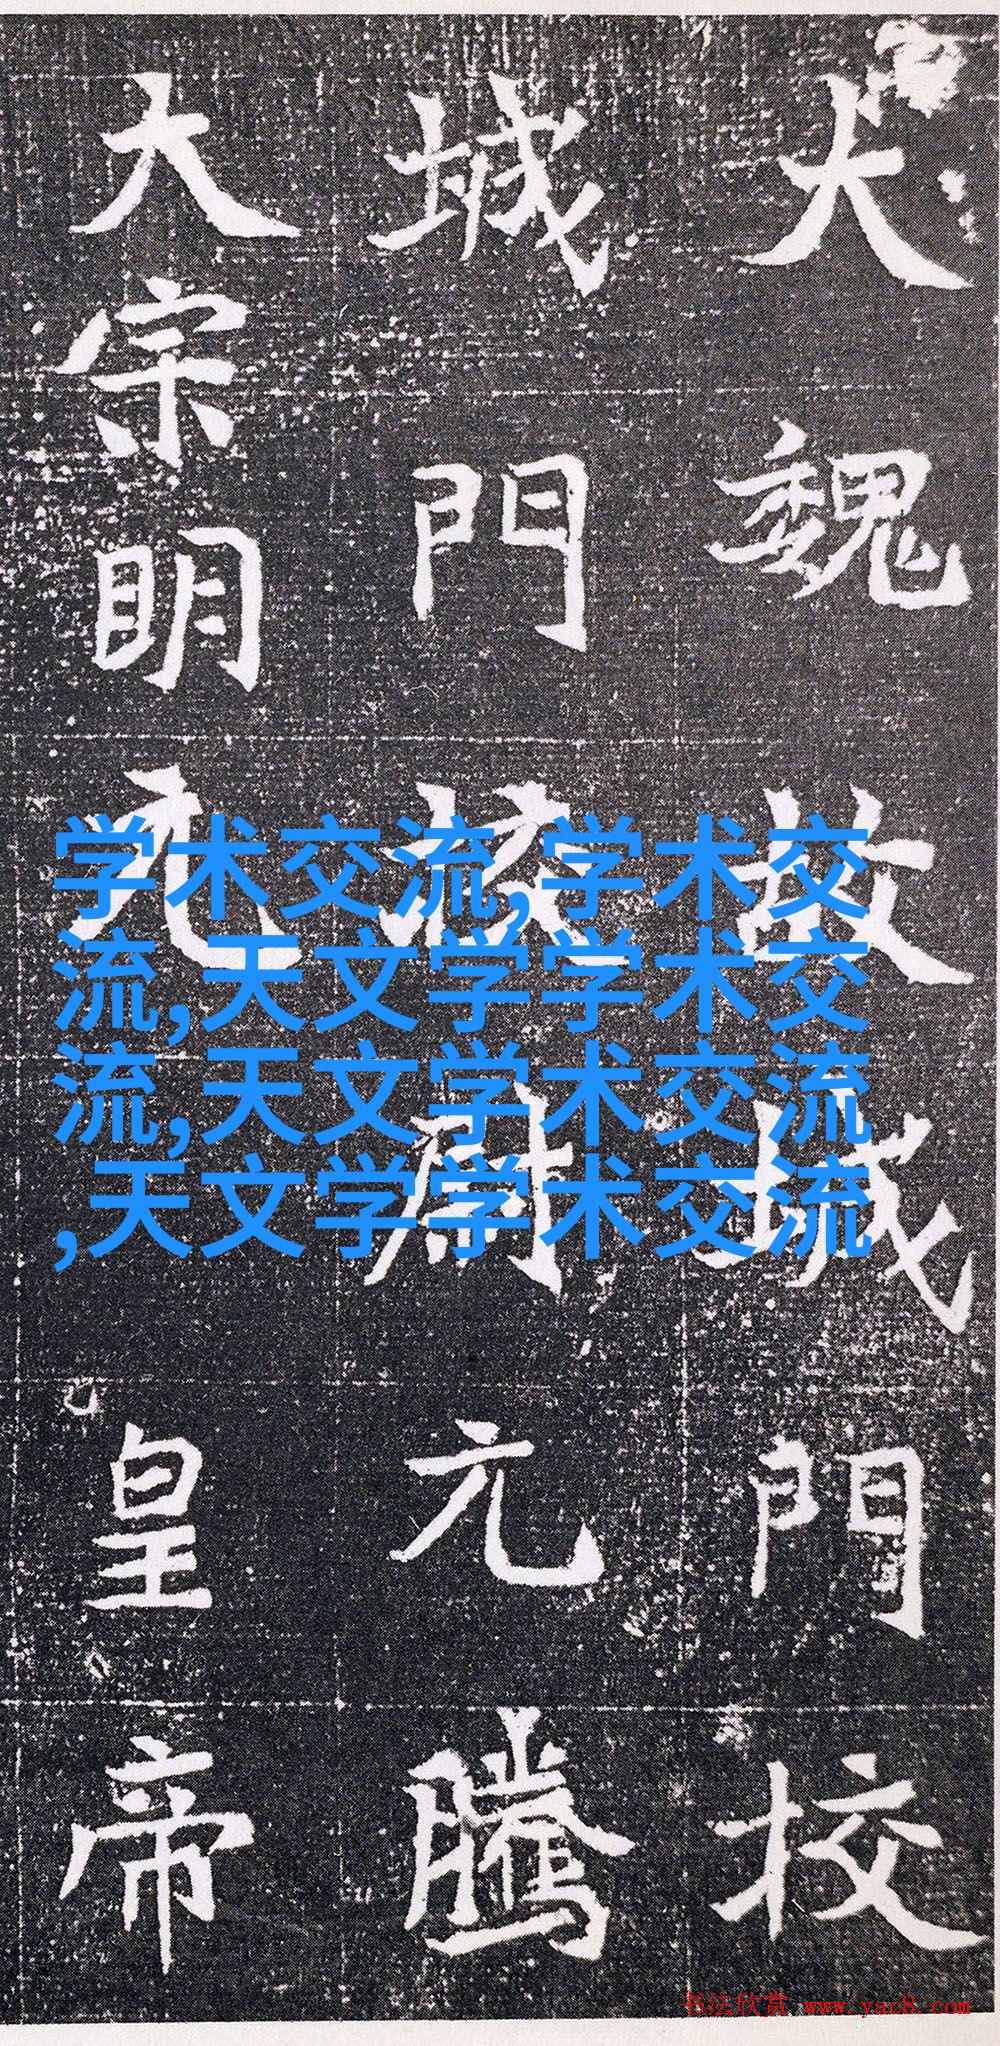 大魏故城門校
城門校尉元騰
大宗明元皇帝
学术交流,学术交
流,天文学学术交
流,天文学术交流
,天文学学术交流
书法欣赏 www.yac8.com